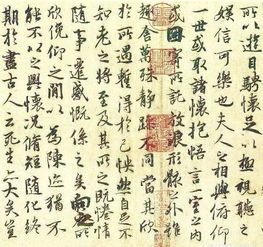 所以遊目騁懷足以極視聽之
娛信可樂也夫人之相與俯仰
一世或取諸懷抱悟言一室之內
或因寄所託放浪形骸之外雖
趣舍萬殊靜躁不同當其欣
於所遇暫得於己怏然自足不
知老之將至及其所之既惓情
隨事遷感慨係之矣向之所
欣俛仰之間以為陳迹猶不
能不以之興懷況脩短隨化終
期於盡古人云死生亦大矣豈